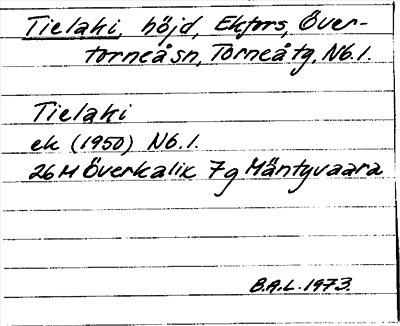 Tielaki, höjd, Ekfors, Över-
torneåsn, Torneåtg, Nb.l.
Tielaki
ek (1950) Nb.l.
26 M Överkalix 7g Mäntyvaara
B.A.L. 1973.